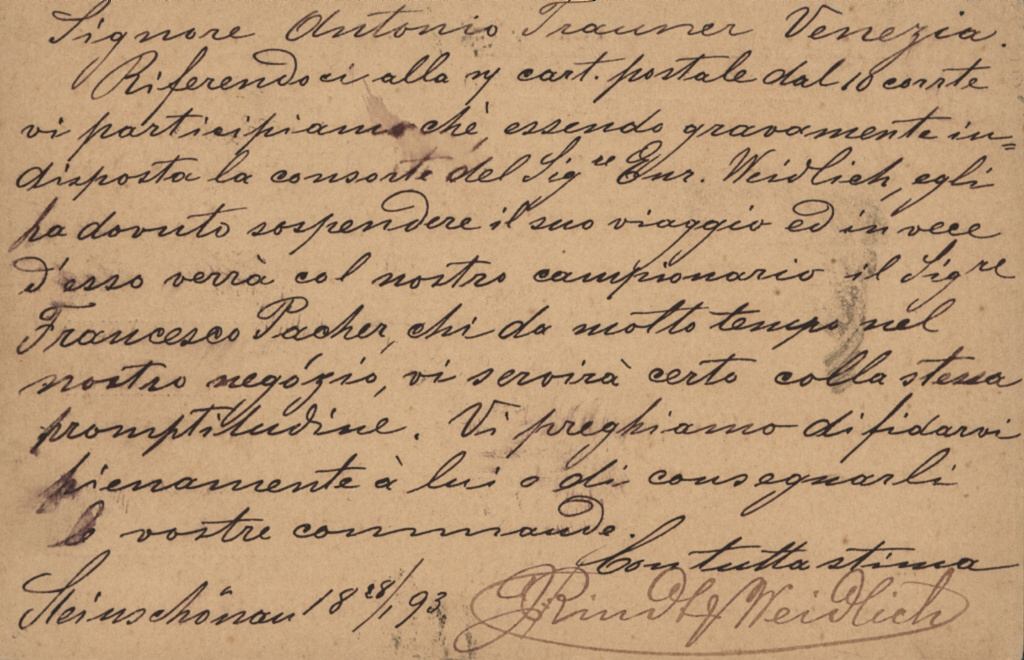 Signore Antonio Trauner Venezia.
Riferendoci alla n/ cart. postale dal 10 corrte
vi participiamo chè, essendo gravamente in=
disposta la consorte del Sigre Enr. Weidlich, egli
ha dovuto sospendere il suo viaggio ed in vece
d'esso verrà col nostro campionario il Sigre
Francesco Pacher, chi da molto tempo nel
nostro negózio, vi servirà certo colla stessa
promptitudine. Vi preghiamo di fidarvi
pienamente à lui o di consegnarli
le vostre commande.
Con tutta stima
Steinschönau 18 28/1 93 Rindt & Weidlich